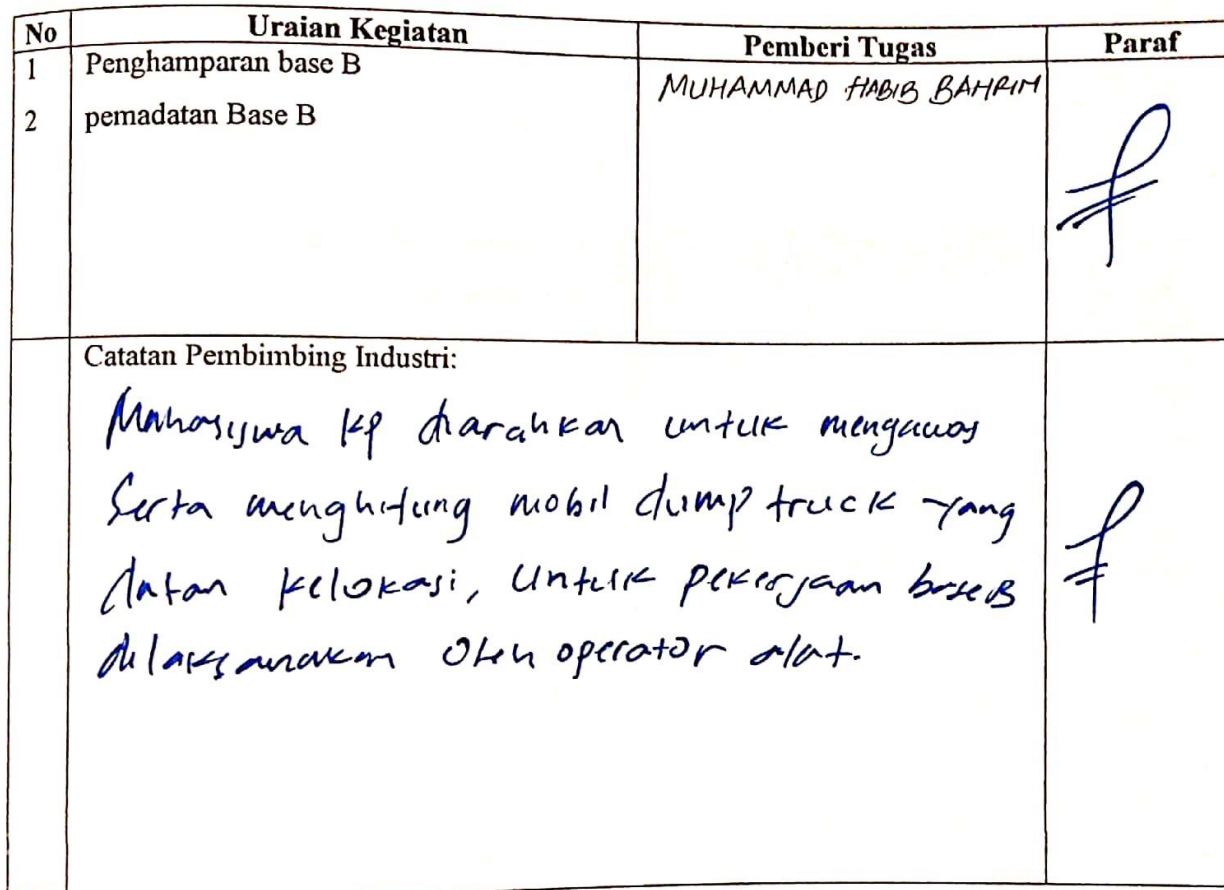 No Uraian Kegiatan Pemberi Tugas Paraf
1 Penghamparan base B MUHAMMAD HABIB BAHRIM
2 pemadatan Base B
Catatan Pembimbing Industri:
Mahasiswa KP diarahkan untuk mengawas
Serta menghitung mobil dump truck yang
datan kelokasi, Untuk pekerjaan base B
dilaksanakan Oleh operator alat.